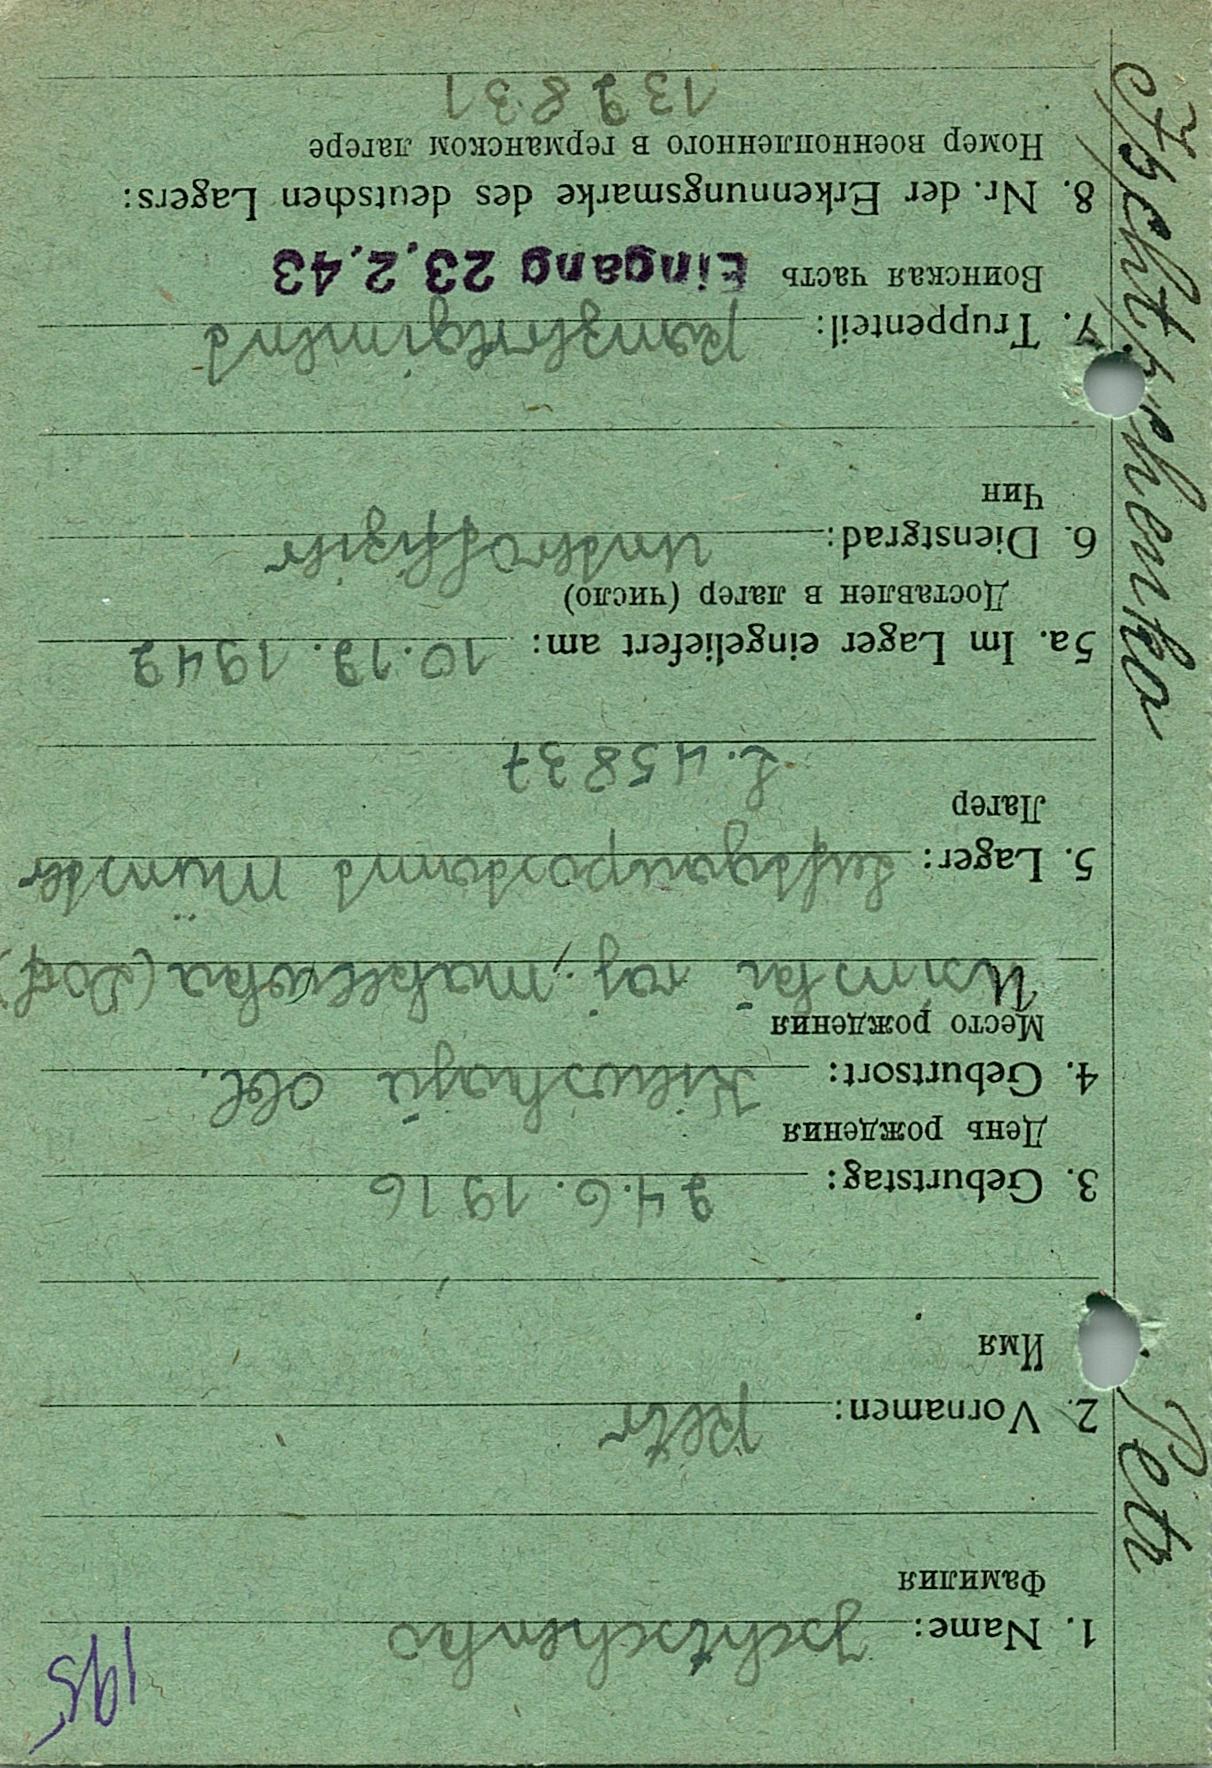 195
1. Name: Jschtschenko
Фамилия
2. Vornamen: Petr
Имя
3. Geburtstag: 24.6.1916
День рождения
4. Geburtsort: Kiewskaja obl.
Место рождения
raj. Makeewka (Dorf)
5. Lager: Luftgaupostamt Münster
Лагер
L. 45837
5a. Im Lager eingeliefert am: 10.12.1942
Доставлен в лагер (число)
6. Dienstgrad: Unteroffizier
Чин
7. Truppenteil: Panzerregiment
Воинская часть Eingang 23.2.43
8. Nr. der Erkennungsmarke des deutschen Lagers:
Номер военнопленного в германском лагере
132831
Petr